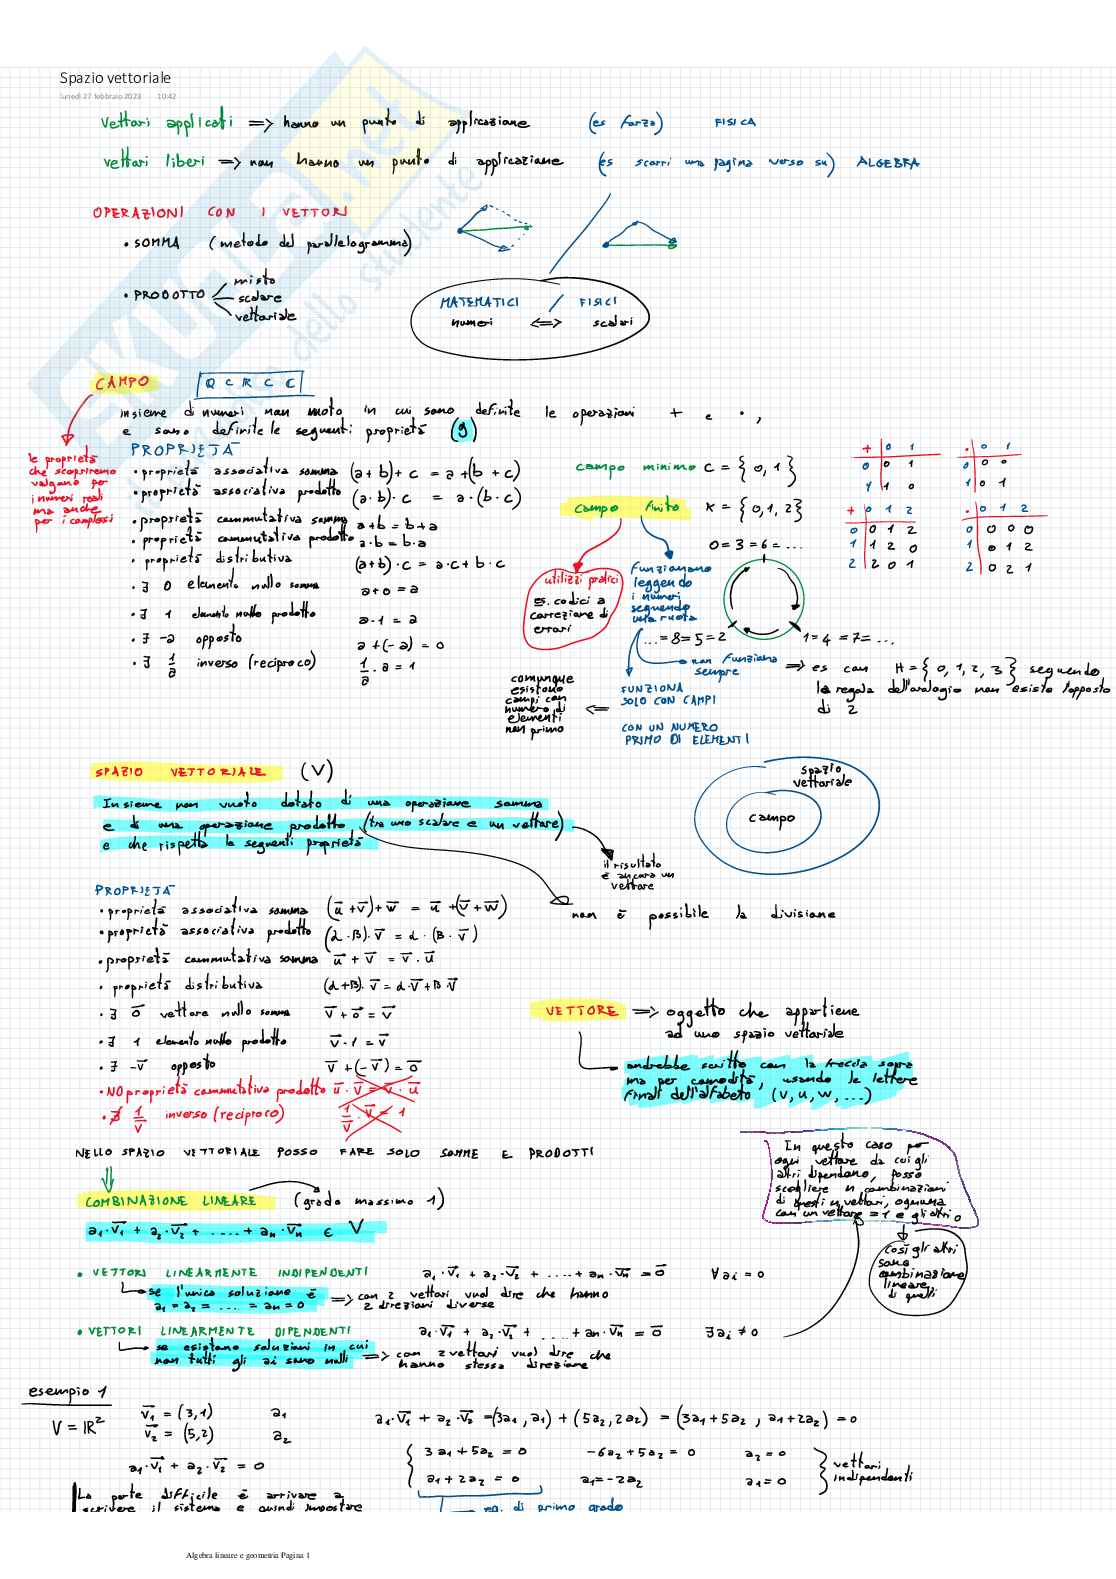 Spazio vettoriale
lunedì 27 febbraio 2023 10:42
vettori applicati => hanno un punto di applicazione (es forza) FISICA
vettori liberi => non hanno un punto di applicazione (es scorri una pagina verso su) ALGEBRA
OPERAZIONI CON I VETTORI
• SOMMA (metodo del parallelogramma)
• PRODOTTO misto
scalare
vettoriale
MATEMATICI / FISICI
numeri <=> scalari
CAMPO Q ⊂ R ⊂ C
insieme di numeri non vuoto in cui sono definite le operazioni + e • ,
e sono definite le seguenti proprietà (9)
le proprietà
che scopriremo
valgono per
i numeri reali
ma anche
per i complessi
PROPRIETÀ
• proprietà associativa somma (a+b)+c = a+(b+c)
• proprietà associativa prodotto (a·b)·c = a·(b·c)
• proprietà commutativa somma a+b = b+a
• proprietà commutativa prodotto a·b = b·a
• proprietà distributiva (a+b)·c = a·c+b·c
• ∃ 0 elemento nullo somma a+0 = a
• ∃ 1 elemento nullo prodotto a·1 = a
• ∃ -a opposto a+(-a) = 0
• ∃ 1/a inverso (reciproco) 1/a · a = 1
campo minimo C = {0, 1}
+ 0 1
0 0 1
1 1 0
· 0 1
0 0 0
1 0 1
campo finito K = {0,1,2}
+ 0 1 2
0 0 1 2
1 1 2 0
2 2 0 1
· 0 1 2
0 0 0 0
1 0 1 2
2 0 2 1
0=3=6=...
utilizzi pratici
es. codici a
correzione di
errori
funzionano
leggendo
i numeri
seguendo
una ruota
...=8=5=2
1=4=7=...
non funziona
sempre
=> es con H={0,1,2,3} seguendo
la regola dell'orologio non esiste l'opposto
di 2
FUNZIONA
SOLO CON CAMPI
CON UN NUMERO
PRIMO DI ELEMENTI
<=
comunque
esistono
campi con
numero di
elementi
non primo
SPAZIO VETTORIALE (V)
Insieme non vuoto dotato di una operazione somma
e di una operazione prodotto (tra uno scalare e un vettore)
e che rispetta le seguenti proprietà
il risultato
è ancora un
vettore
non è possibile la divisione
spazio
vettoriale
campo
PROPRIETÀ
• proprietà associativa somma (u⃗+v⃗)+w⃗ = u⃗+(v⃗+w⃗)
• proprietà associativa prodotto (α·β)·v⃗ = α·(β·v⃗)
• proprietà commutativa somma u⃗+v⃗ = v⃗·u⃗
• proprietà distributiva (α+β)·v⃗ = α·v⃗+β·v⃗
• ∃ 0⃗ vettore nullo somma v⃗+0⃗ = v⃗
• ∃ 1 elemento nullo prodotto v⃗·1 = v⃗
• ∃ -v⃗ opposto v⃗+(-v⃗) = 0⃗
• NO proprietà commutativa prodotto u⃗·v⃗ = v⃗·u⃗
• ∄ 1/v⃗ inverso (reciproco) 1/v⃗ · v⃗ = 1
VETTORE => oggetto che appartiene
ad uno spazio vettoriale
andrebbe scritto con la freccia sopra
ma per comodità, usando le lettere
finali dell'alfabeto (v, u, w, ...)
NELLO SPAZIO VETTORIALE POSSO FARE SOLO SOMME E PRODOTTI
COMBINAZIONE LINEARE (grado massimo 1)
a₁·v⃗₁ + a₂·v⃗₂ + ..... + aₙ·v⃗ₙ ∈ V
In questo caso per
ogni vettore da cui gli
altri dipendono, posso
scegliere n combinazioni
di questi n vettori, ognuna
con un vettore = 1 e gli altri 0
così gli altri
sono
combinazione
lineare
di quelli
• VETTORI LINEARMENTE INDIPENDENTI a₁·v⃗₁ + a₂·v⃗₂ + ....+ aₙ·v⃗ₙ = 0⃗ ∀aᵢ = 0
se l'unica soluzione è
a₁ = a₂ = .... = aₙ = 0
=> con 2 vettori vuol dire che hanno
2 direzioni diverse
• VETTORI LINEARMENTE DIPENDENTI a₁·v⃗₁ + a₂·v⃗₂ + ....+ aₙ·v⃗ₙ = 0⃗ ∃aᵢ ≠ 0
se esistono soluzioni in cui
non tutti gli ai sono nulli
=> con 2 vettori vuol dire che
hanno stessa direzione
esempio 1
V = ℝ²
v⃗₁ = (3,1) a₁
v⃗₂ = (5,2) a₂
a₁·v⃗₁ + a₂·v⃗₂ = 0
a₁·v⃗₁ + a₂·v⃗₂ = (3a₁, a₁) + (5a₂, 2a₂) = (3a₁+5a₂, a₁+2a₂) = 0
3a₁+5a₂ = 0 -6a₂+5a₂ = 0 a₂=0
a₁+2a₂ = 0 a₁=-2a₂ a₁=0
vettori
indipendenti
eq. di primo grado
La parte difficile è arrivare a
scrivere il sistema e quindi impostare
Algebra lineare e geometria Pagina 1
SKUOLA.net
dello studente